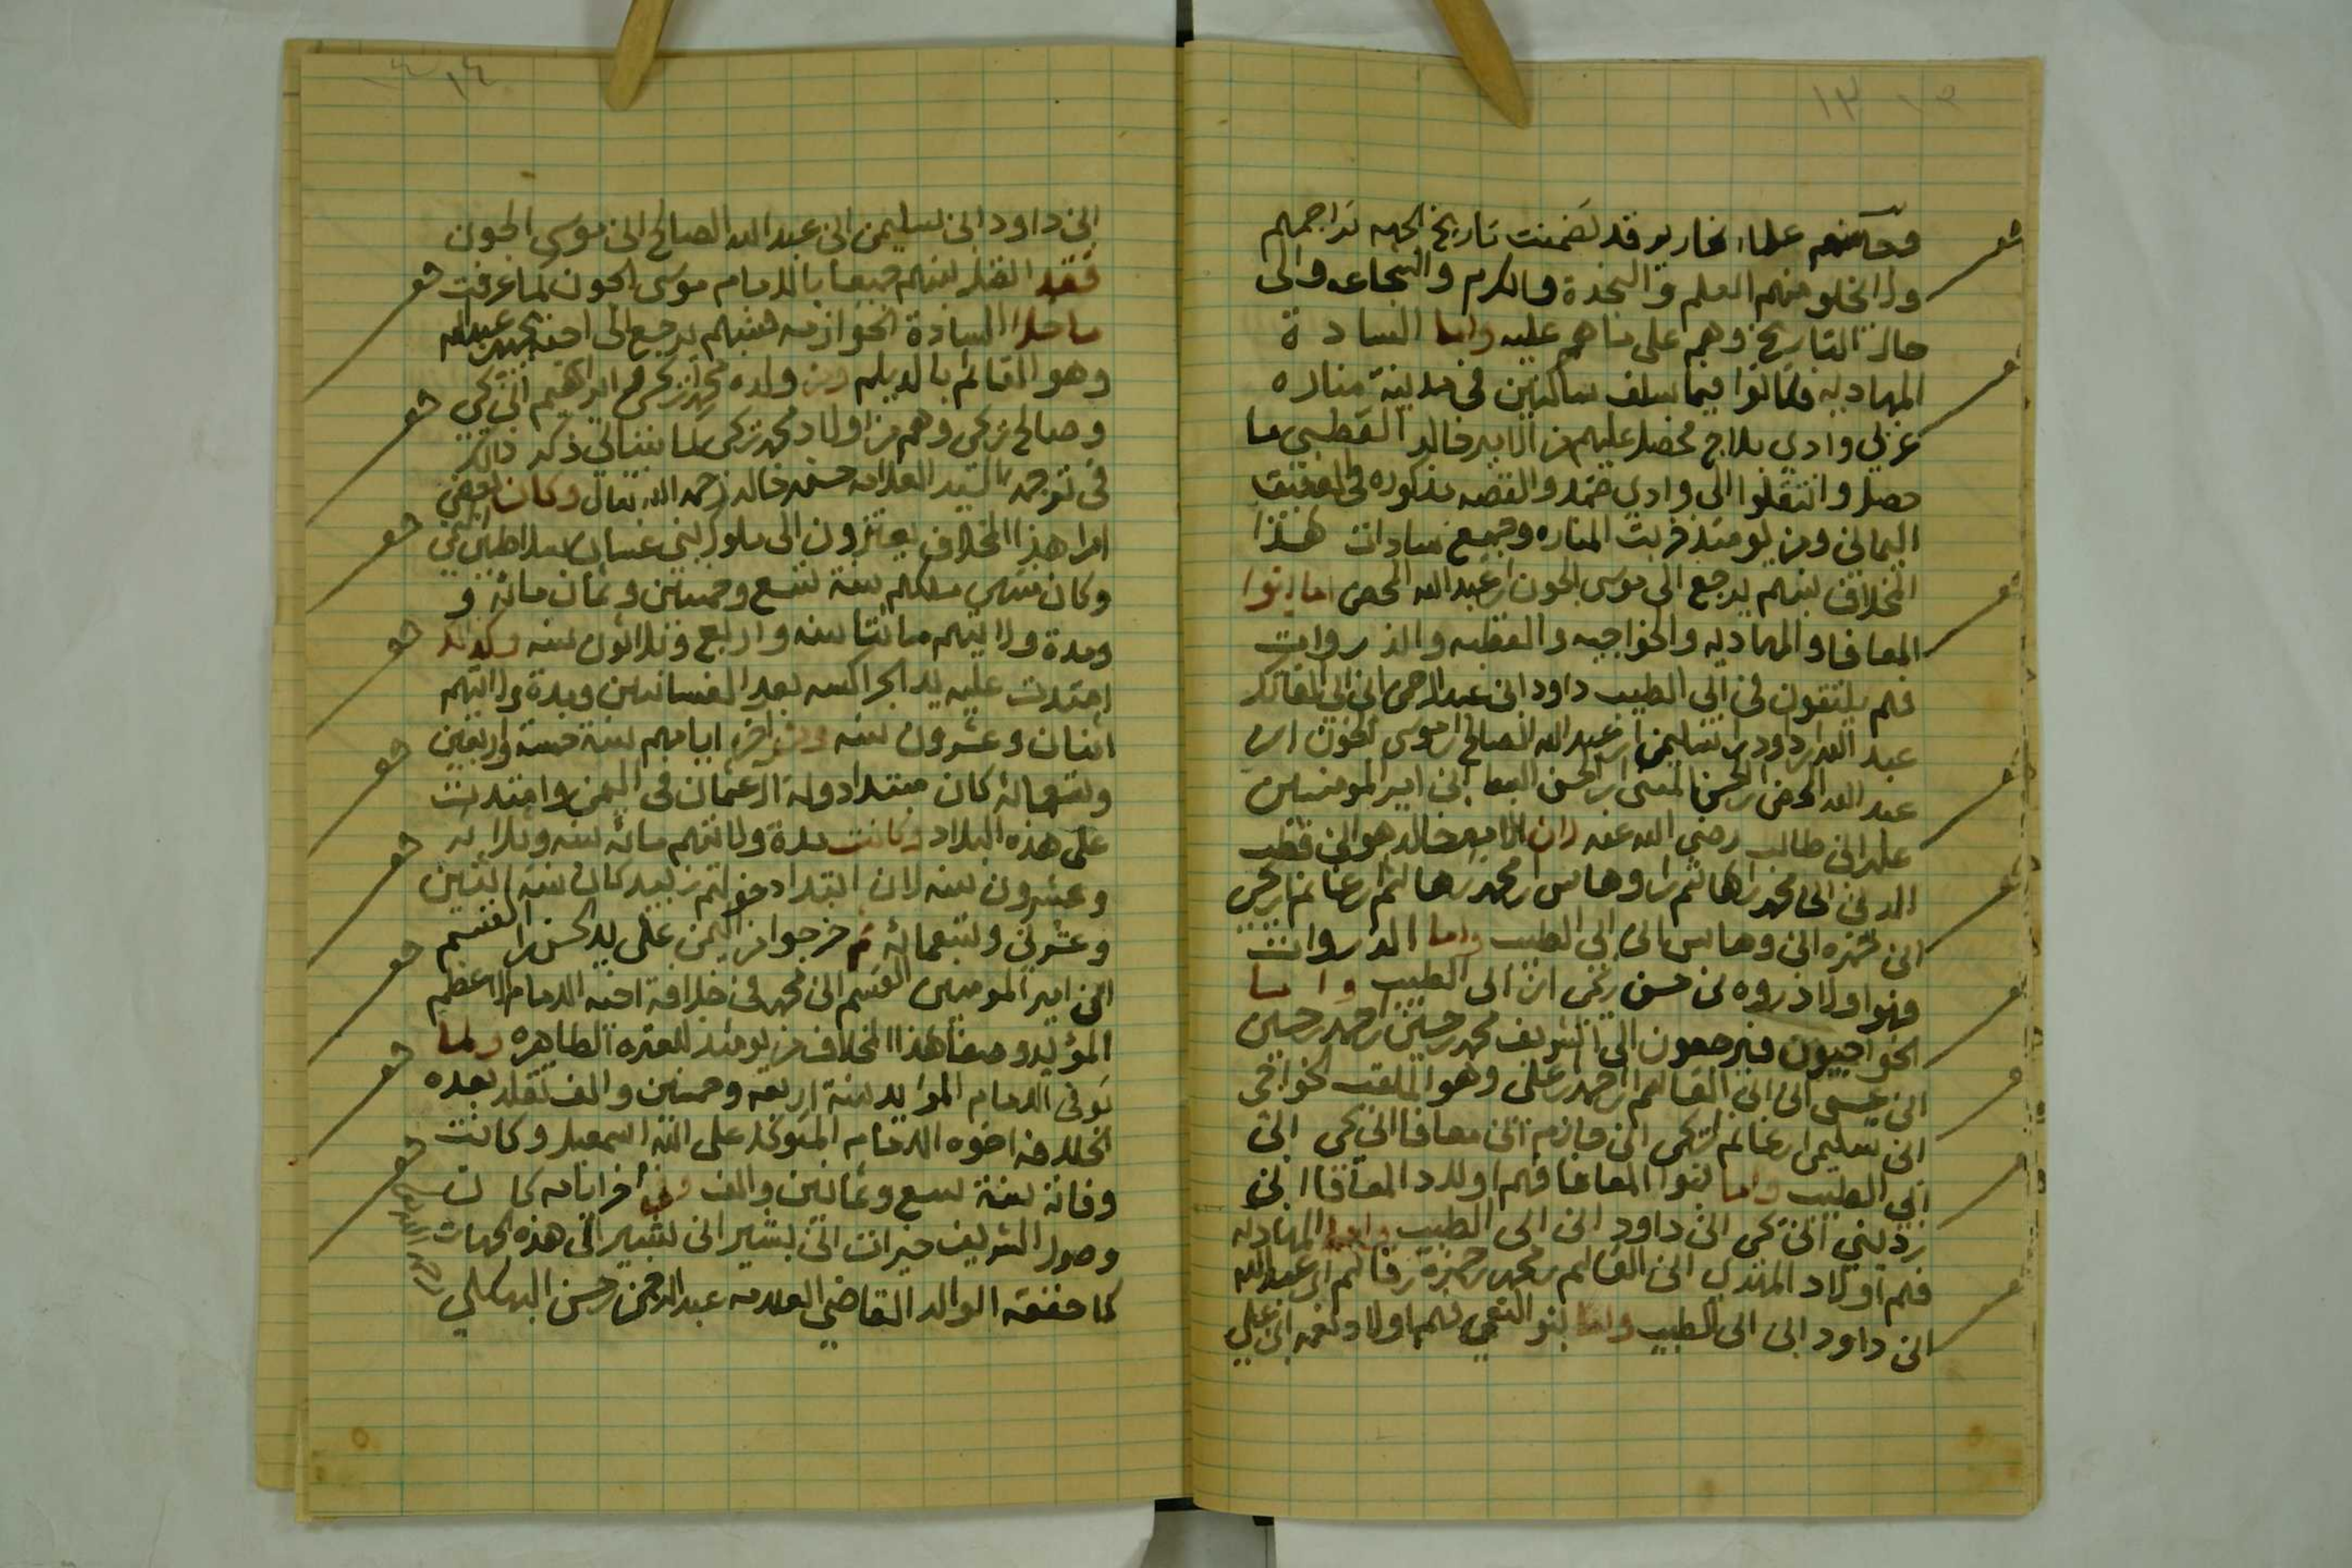 ١٣
علماء نحارير قد تضمنت تاريخ الجهه تراجمهم
ولا تخلو منهم العلم والنجدة والكرم والشجاعه والى
حال التاريخ وهم على ما هم عليه واما السادة
المهاديه فكانوا فيما سلف ساكنين في مدينة مناره
غربي وادي بلاج فحصل عليهم من الامير خالد القطبي ما
حصل وانتقلوا الى وادي ضمد والقصه مذكوره في العقيق
اليماني ومن يومئذ خربت المناره وجميع سادات هذا
المخلاف نسبهم يرجع الى موسى الجون ابن عبد الله المحض اما بنوا
المعافا والمهاديه والخواجيه والقطبه والذروات
فهم يلتقون في ابي الطيب داود ابن عبد الرحمن ابن ابي الفاتك
عبد الله ابن داود ابن سليمن ابن عبد الله الصالح ابن موسى الجون ابن
عبد الله المحض ابن الحسن المثنى ابن الحسن السبط ابن امير المومنين
علي ابن ابي طالب رضي الله عنه لان الامير خالد هو ابن قطب
الدين ابن محمد ابن هاشم ابن وهاس ابن محمد ابن هاشم ابن غانم ابن يحيى
ابن حمزه ابن وهاس ابن ابي الطيب واما الذروات
فهوا اولاد ذروه بن حسن بن يحيى ابن ابي الطيب واما
الخواجيون فيرجعون الى الشريف محمد بن حسين بن احمد بن حسين
ابن عيسى ابن ابي القاسم ابن احمد بن علي وهو الملقب الخواجي
ابن سليمن ابن غانم ابن يحيى ابن حازم ابن معافا ابن يحيى ابن
ابي الطيب واما بنوا المعافا فهم اولاد المعافا ابن
رديني ابن يحيى ابن داود ابن ابي الطيب واما المهاديه
فهم اولاد المهدي ابن القاسم بن محمد بن حمزة بن قاسم ابن عبد الله
ابن داود ابن ابي الطيب واما بنو النعمي فهم اولاد نعمه ابن علي
١٤
ابن داود ابن سليمن ابن عبد الله الصالح ابن موسى الجون
فقد اتصل نسبهم جميعا بالامام موسى الجون كما عرفت
ما خلا السادة الحوازمه فنسبهم يرجع الى اخيه يحيى بن عبد الله
وهو القائم بالديلم ومن ولده محمد بن يحيى ابراهيم ابن يحيى
وصالح بن يحيى وهم من اولاد محمد بن يحيى كما سياتي ذكر ذالك
في ترجمة السيد العلامه حسن خالد رحمه الله تعالى وكان بعض
امرا هذا المخلاف يعتزون الى ملوك بني غسان سلاطين
وكان منتهى ملكهم سنة تسع وخمسين وثمان مائة و
ومدة ولايتهم مائتا سنه واربع وثلاثون سنه وكذالك
امتدت عليه يد الجراكسه بعد الغسانيين ومدة ولايتهم
اثنان وعشرون سنه وفي اخر ايامهم سنة خمسة واربعين
وتسعمائة كان مبتدا دولة ال عثمان في اليمن وامتدت
على هذه البلاد وكانت مدة ولايتهم مائة سنه وثلاثة
وعشرون سنه لان ابتدا دخولهم زبيد كان سنة اثنين
وعشرين وتسعمائة ثم خرجوا من اليمن على يد الحسن ابن القسم
ابن امير المومنين القسم ابن محمد في خلافة اخيه الامام الاعظم
المؤيد وصفا هذا المخلاف من يومئذ للعتره الطاهره ولما
توفى الامام المؤيد سنة اربعه وخمسين والف تقلد بعده
الخلافه اخوه الامام المتوكل على الله اسمعيل وكانت
وفاته سنة سبع وثمانين والف وفي اخر ايامه كان
وصول الشريف خيرات ابن بشير ابن بشير الى هذه الجهات
كما حققه الوالد القاضي العلامه عبد الرحمن بن حسن البهكلي